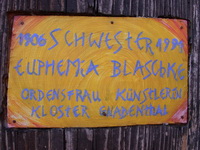 1906 SCHWESTER 1991
EUPHEMIA BLASCHKE
ORDENSFRAU KÜNSTLERIN
KLOSTER GNADENTHAL